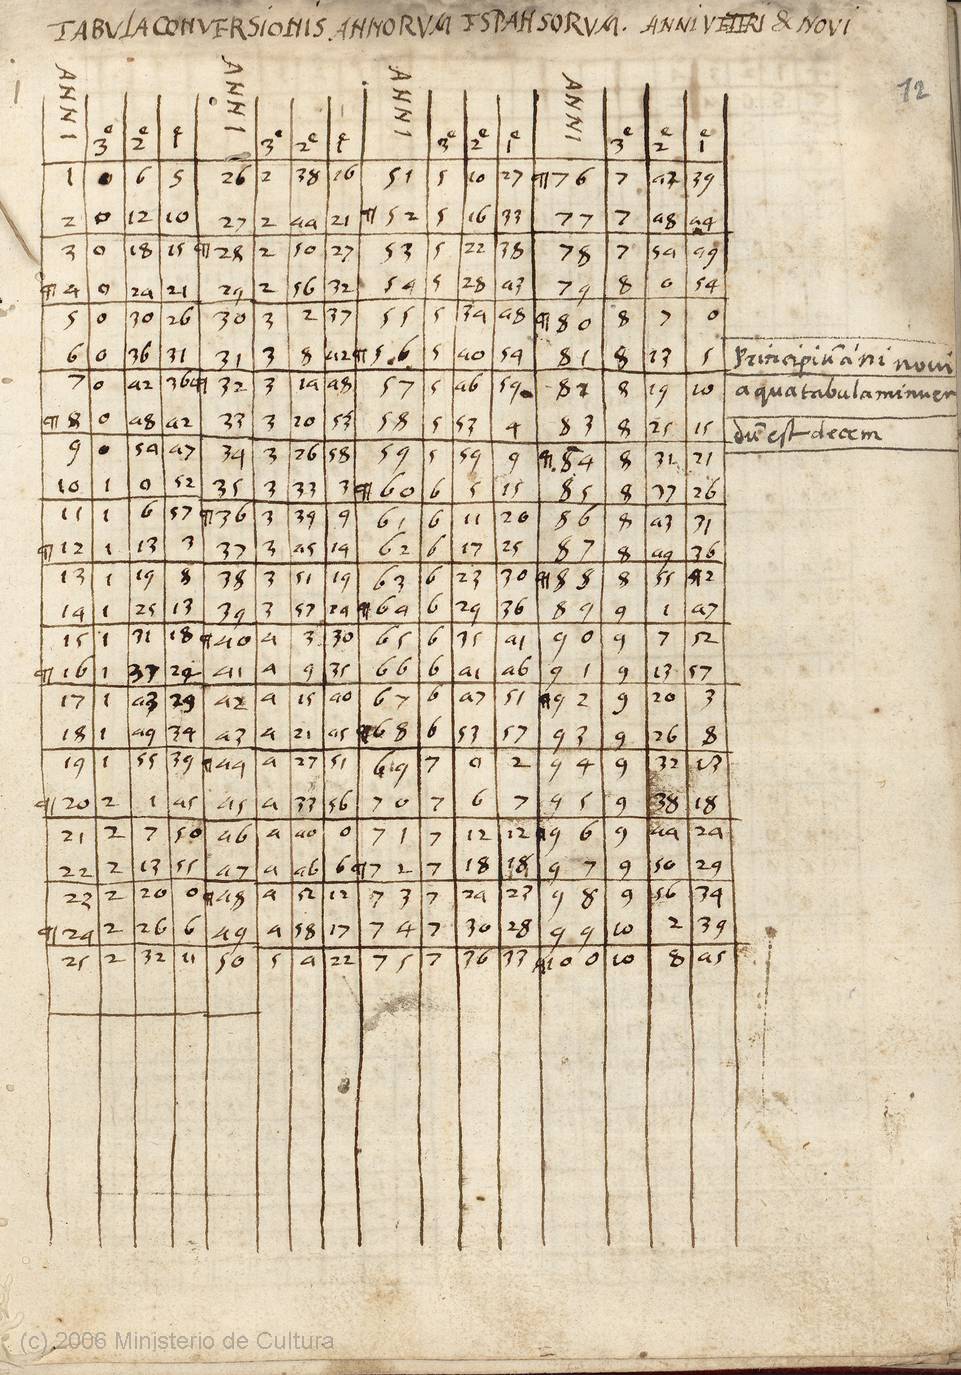 TABVLA CONVERSIONIS ANNORVM ESPANSORVM. ANNI VETERI & NOVI
12
ANNI 3e 2e 1e ANNI 3e 2e 1e ANNI 3e 2e 1e ANNI 3e 2e 1e
1 0 6 5 26 2 38 16 51 5 10 27 ¶76 7 42 39
2 0 12 10 27 2 44 21 ¶52 5 16 33 77 7 48 44
3 0 18 15 ¶28 2 50 27 53 5 22 38 78 7 54 49
¶4 0 24 21 29 2 56 32 54 5 28 43 79 8 0 54
5 0 30 26 30 3 2 37 55 5 34 48 ¶80 8 7 0
6 0 36 31 31 3 8 42 ¶56 5 40 54 81 8 13 5 Principiũ ãni novi
7 0 42 36 ¶32 3 14 48 57 5 46 59 82 8 19 10 a qua tabula minuen
¶8 0 48 42 33 3 20 53 58 5 53 4 83 8 25 15 dũ est decem
9 0 54 47 34 3 26 58 59 5 59 9 ¶84 8 31 21
10 1 0 52 35 3 33 3 ¶60 6 5 15 85 8 37 26
11 1 6 57 ¶36 3 39 9 61 6 11 20 86 8 43 31
¶12 1 13 3 37 3 45 14 62 6 17 25 87 8 49 36
13 1 19 8 38 3 51 19 63 6 23 30 ¶88 8 55 42
14 1 25 13 39 3 57 24 ¶64 6 29 36 89 9 1 47
15 1 31 18 ¶40 4 3 30 65 6 35 41 90 9 7 52
¶16 1 37 24 41 4 9 35 66 6 41 46 91 9 13 57
17 1 43 29 42 4 15 40 67 6 47 51 ¶92 9 20 3
18 1 49 34 43 4 21 45 ¶68 6 53 57 93 9 26 8
19 1 55 39 ¶44 4 27 51 69 7 0 2 94 9 32 13
¶20 2 1 45 45 4 33 56 70 7 6 7 95 9 38 18
21 2 7 50 46 4 40 0 71 7 12 12 ¶96 9 44 24
22 2 13 55 47 4 46 6 ¶72 7 18 18 97 9 50 29
23 2 20 0 ¶48 4 52 12 73 7 24 23 98 9 56 34
¶24 2 26 6 49 4 58 17 74 7 30 28 99 10 2 39
25 2 32 11 50 5 4 22 75 7 36 33 ¶100 10 8 45
(c) 2006 Ministerio de Cultura